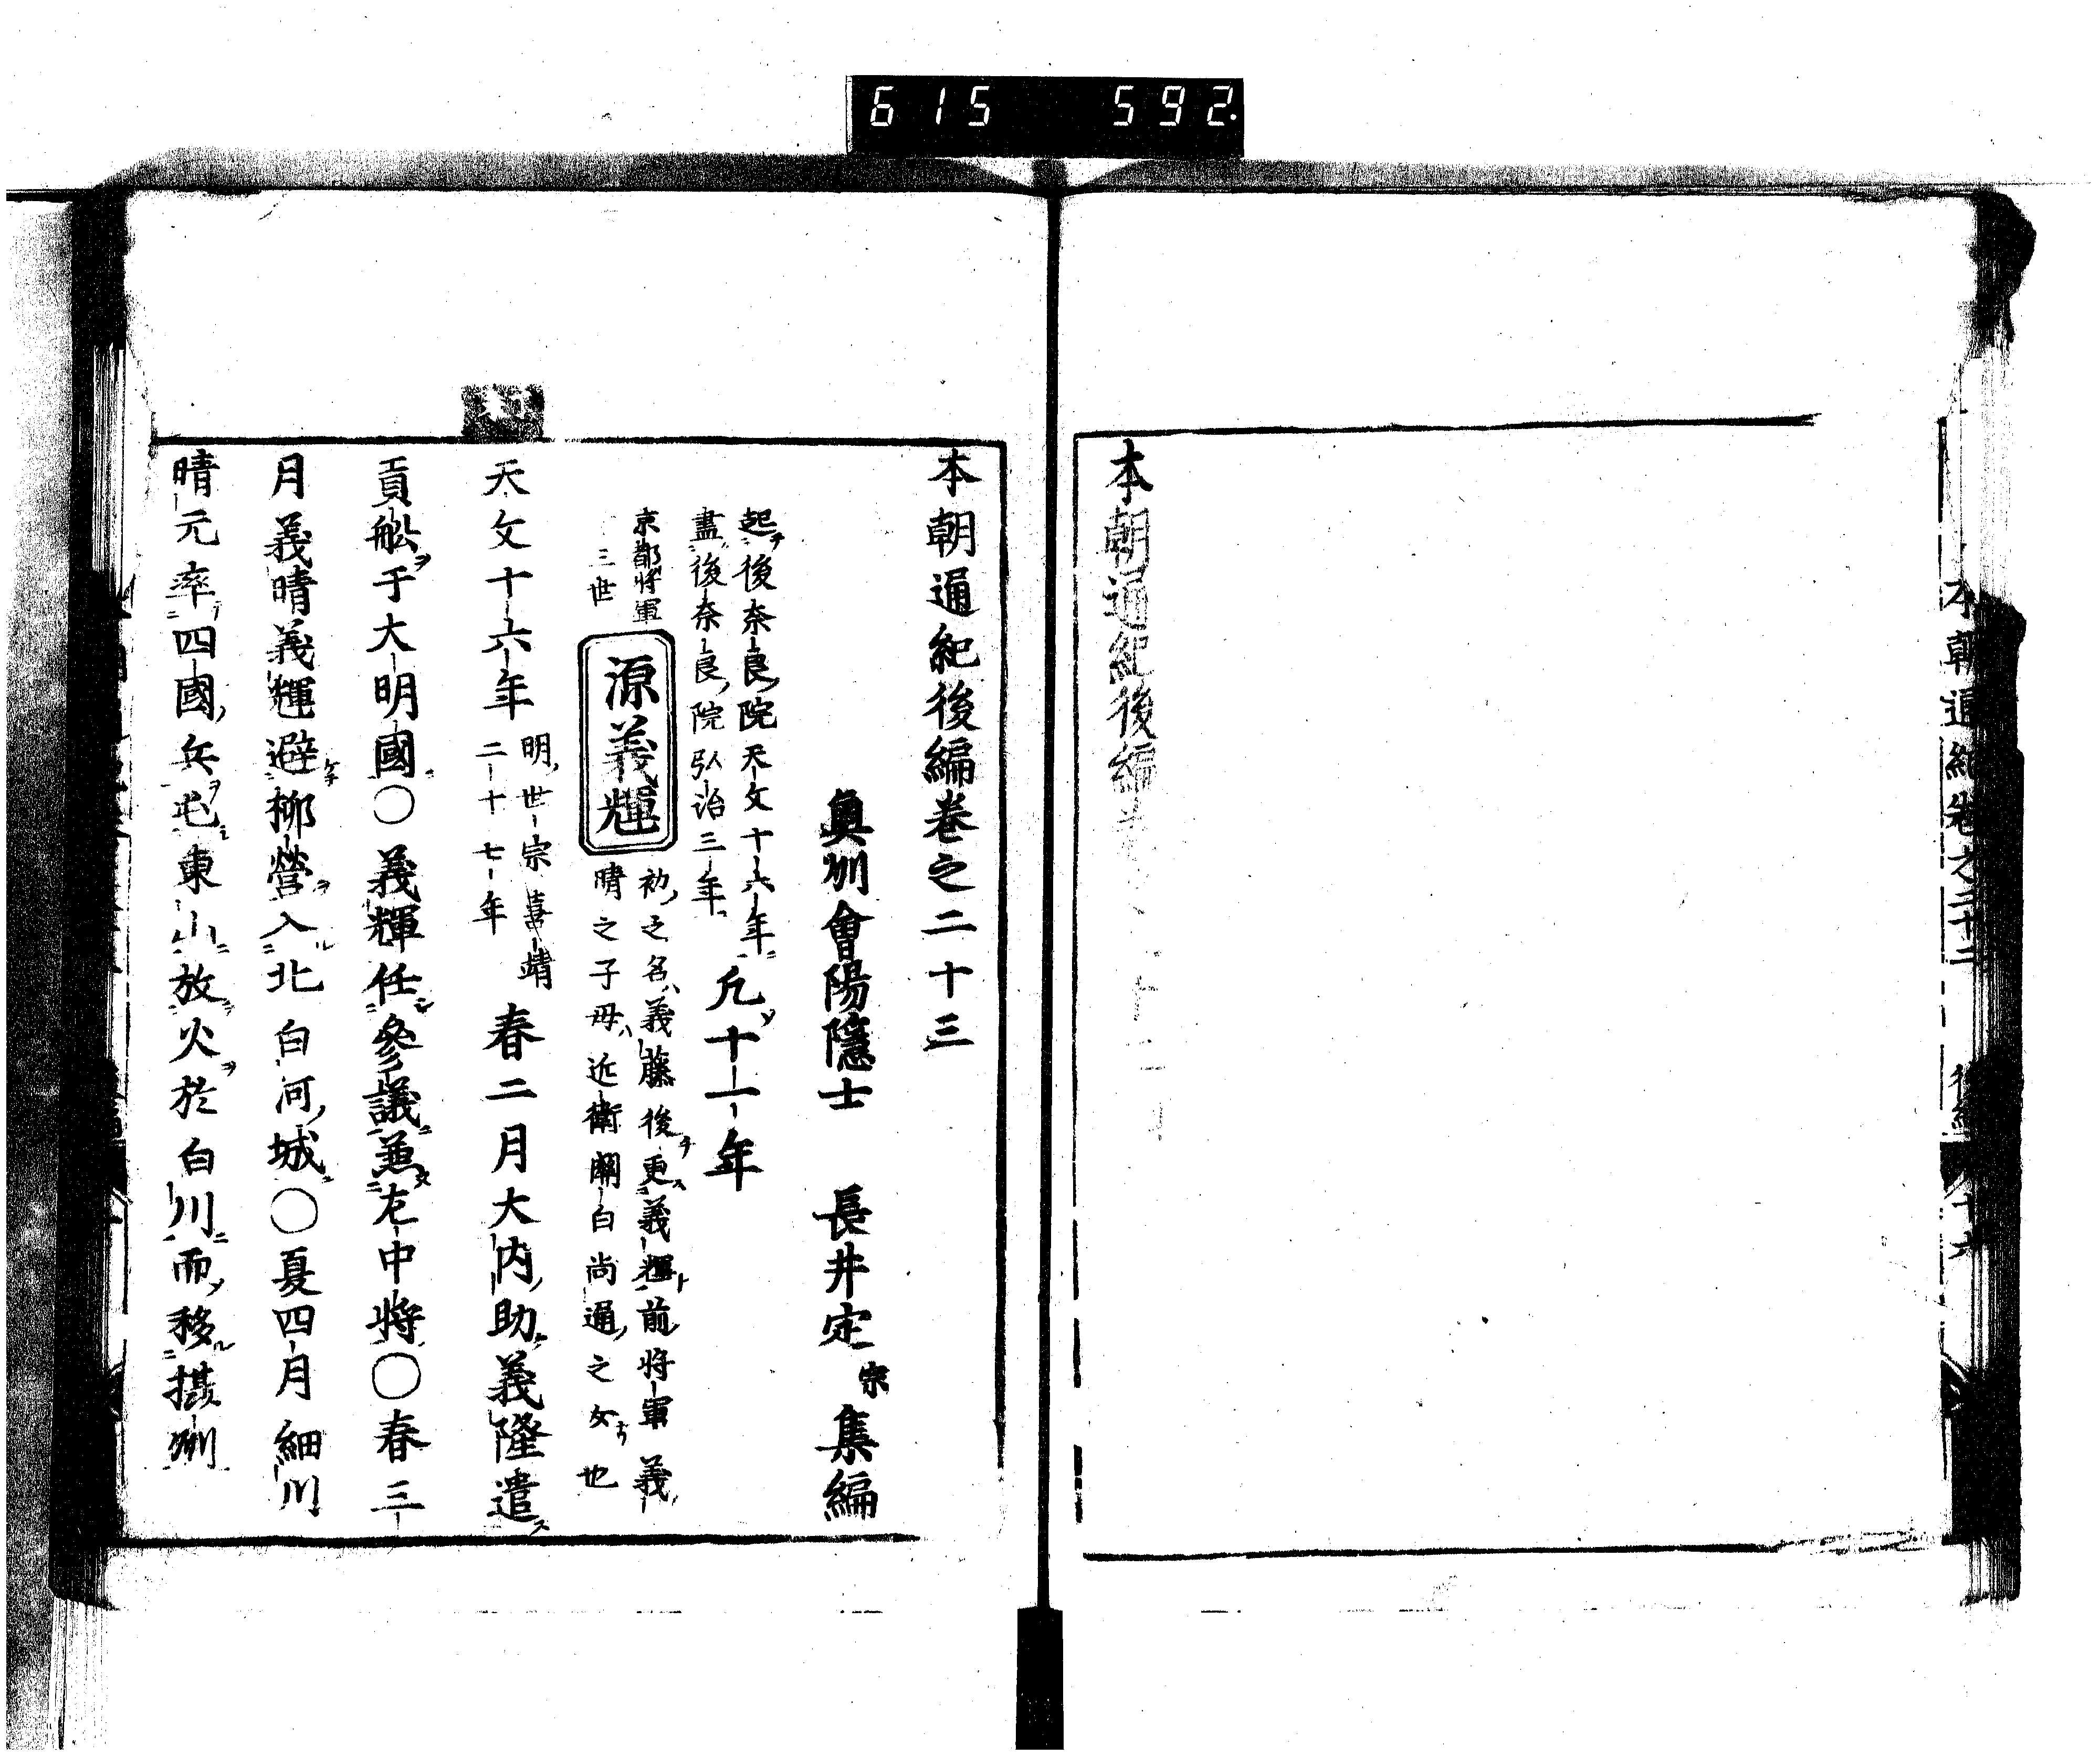 615 592.
本朝通紀後編
本朝通紀後編巻之二十三
奧州會陽隱士 長井定宗 集編
起後奈良院天文十六年
盡後奈良院弘治三年
凡十一年
京都將軍
三世
源義輝
初之名義藤後更義輝前將軍義
晴之子母近衛關白尚通之女也
天文十六年
明世宗嘉靖
二十七年
春二月大内助義隆遣
貢舩于大明國〇義輝任參議兼左中將〇春三
月義晴義輝避柳營入北白河城〇夏四月細川
晴元率四國兵屯東山放火於白川而移攝州